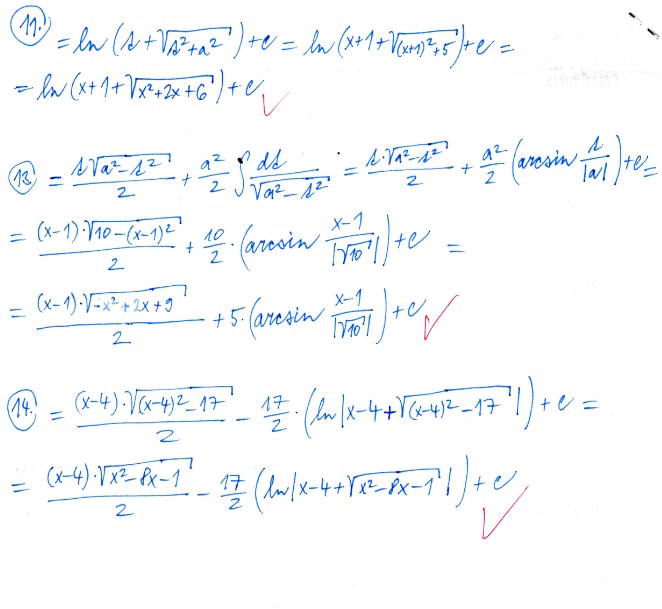 11. = ln (s + √(s²+a²)) + c = ln (x+1+√((x+1)²+5)) + c =
= ln (x+1+√(x²+2x+6)) + c
13. = s√(a²-s²)/2 + a²/2 ∫ ds/√(a²-s²) = s·√(a²-s²)/2 + a²/2 (arcsin s/|a|) + c =
= (x-1)·√(10-(x-1)²)/2 + 10/2 · (arcsin (x-1)/|√10|) + c =
= (x-1)·√(-x²+2x+9)/2 + 5·(arcsin (x-1)/|√10|) + c
14. = (x-4)·√((x-4)²-17)/2 - 17/2 · (ln|x-4+√((x-4)²-17)|) + c =
= (x-4)·√(x²-8x-1)/2 - 17/2 (ln|x-4+√(x²-8x-1)|) + c